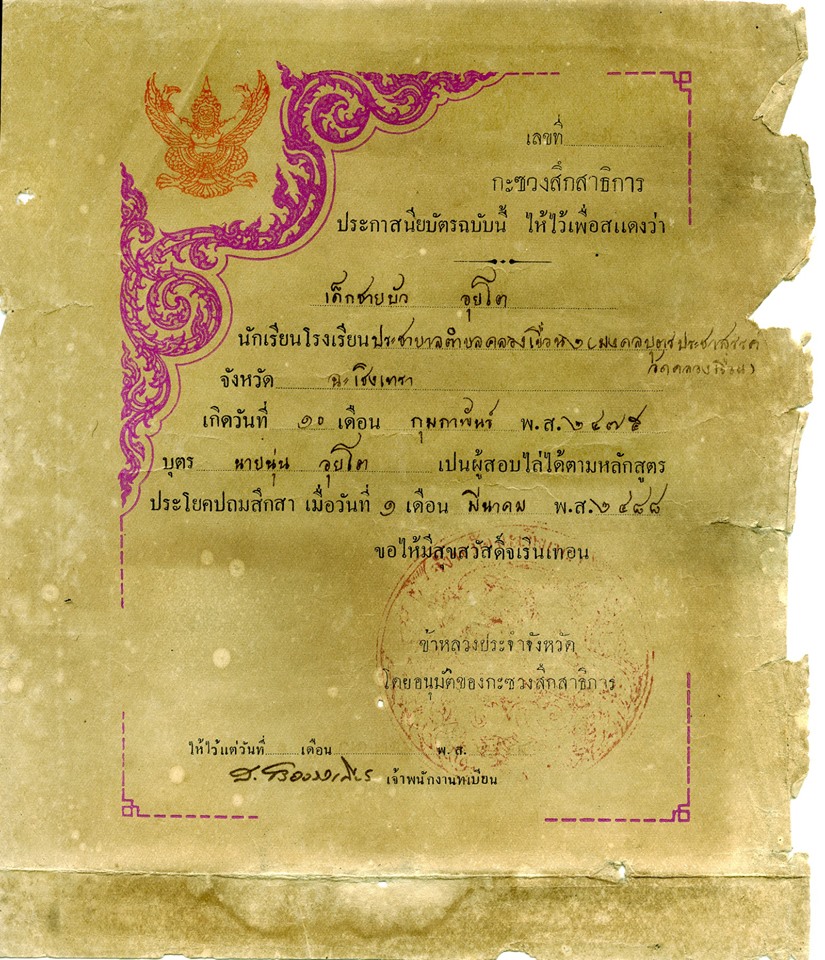 เลขที่
กะซวงสึกสาธิการ
ประกาสนียบัตรฉบับนี้ ไห้ไว้เพื่อสแดงว่า
เด็กชายบัว อุยโต
นักเรียนโรงเรียนประชาบาลตำบลคลองเขื่อน๒(มงคลบุตรประชาสรรค
วัดคลองเขื่อน)
จังหวัด ฉะเชิงเทรา
เกิดวันที่ ๑๐ เดือน กุมภาพันธ์ พ.ส.๒๔๗๕
บุตร นายนุ่น อุยโต เปนผู้สอบไล่ได้ตามหลักสูตร
ประโยคปถมสึกสา เมื่อวันที่ ๑ เดือน มีนาคม พ.ส.๒๔๘๘
ขอไห้มีสุขสวัสดิ์จเรินเทอน
ข้าหลวงประจำจังหวัด
โดยอนุมัติของกะซวงสึกสาธิการ
ให้ไว้แต่วันที่ เดือน พ.ส.
เจ้าพนักงานทเบียน